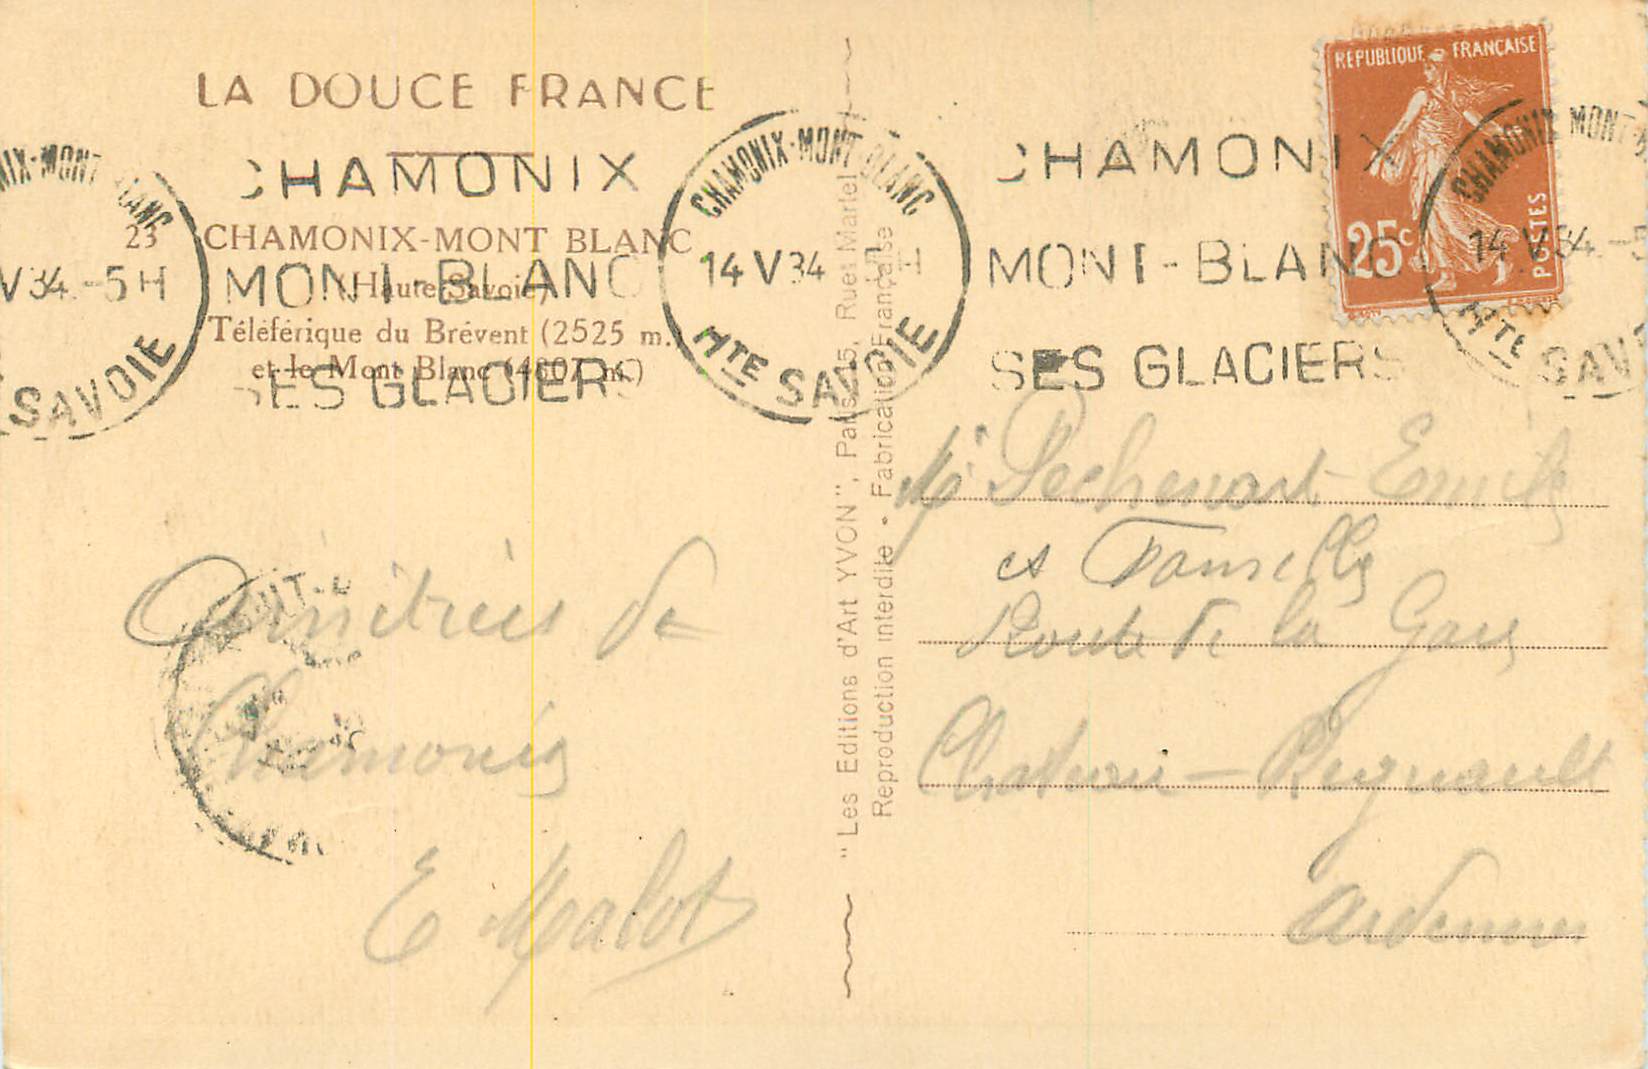 LA DOUCE FRANCE
23 CHAMONIX-MONT BLANC
(Haute-Savoie)
Téléférique du Brévent (2525 m.)
et le Mont Blanc (4807 m.)
CHAMONIX
MONT-BLANC
SES GLACIERS
CHAMONIX-MONT-BLANC
14 V 34
HTE SAVOIE
CHAMONIX
MONT-BLANC
SES GLACIERS
CHAMONIX-MONT-BLANC
14 V 34 -5
HTE SAVOIE
NIX-MONT-BLANC
V 34 -5H
SAVOIE
REPUBLIQUE FRANÇAISE
25c
POSTES
"Les Editions d'Art YVON", Paris, 15, Rue Martel
Reproduction interdite - Fabrication Française
Amitiés de
Chamonix
E Malot
Mr Pechenart Emile
et Famille
Route de la Gare
Chateau-Regnault
Ardennes